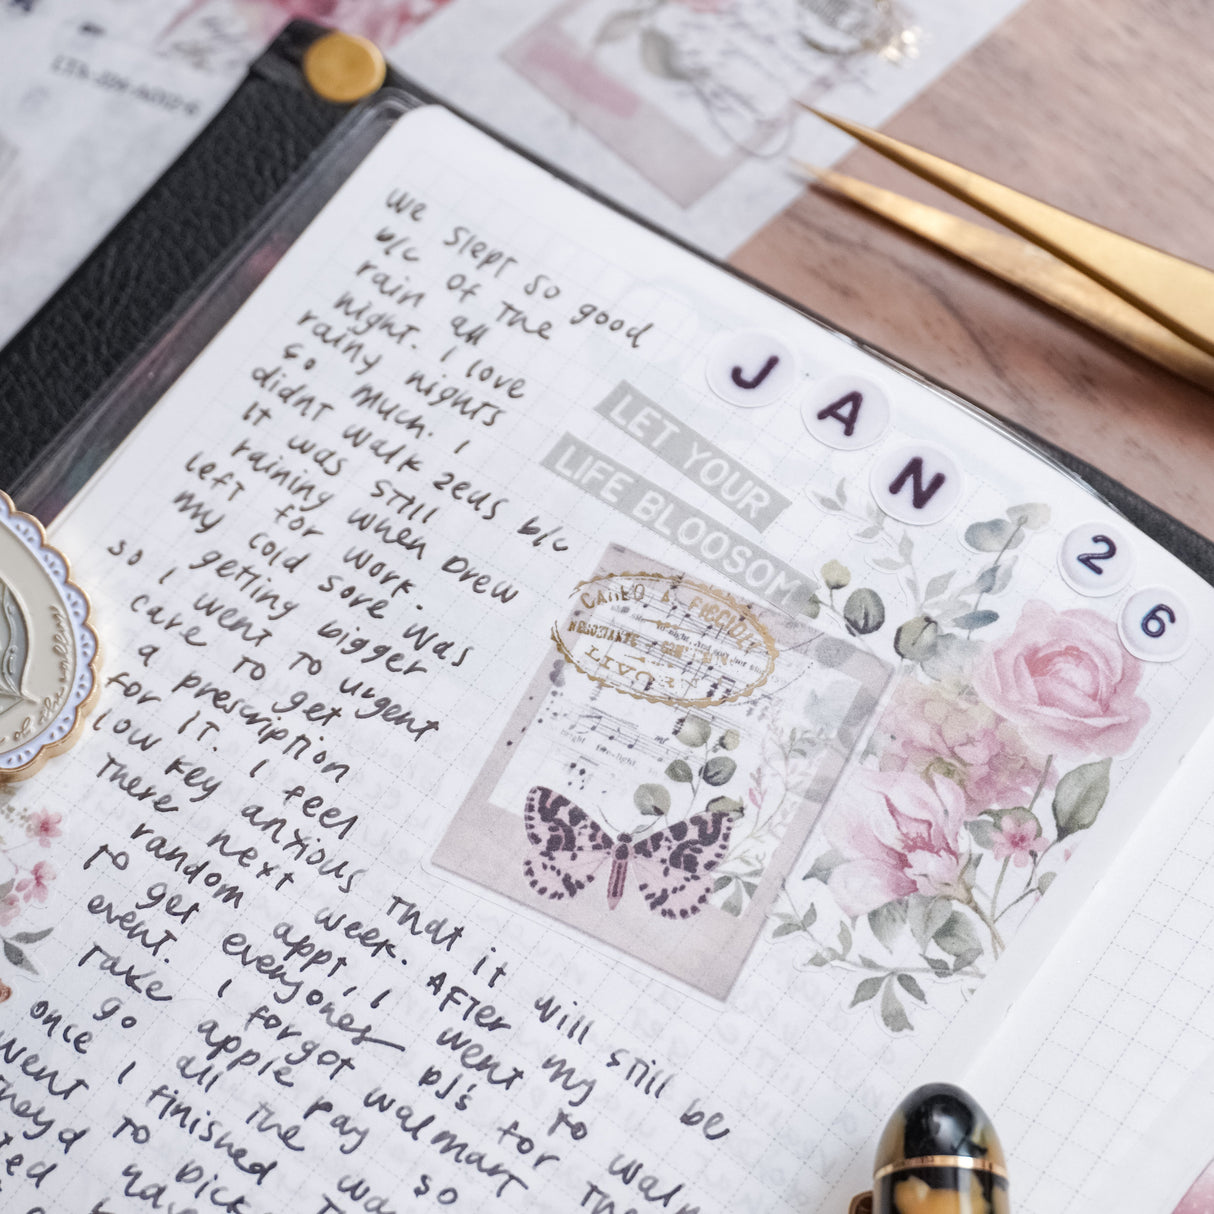 JAN 26
LET YOUR
LIFE BLOOSOM
we slept so good
b/c of the
rain all
night. I love
rainy nights
so much. I
didnt walk zeus b/c
it was still
raining when Drew
left for work.
my cold sore was
getting bigger
so I went to urgent
care to get
a prescription
for it. I feel
low key anxious that it will still be
there next week. After my
random appt, I went to
to get everyones pjs for the
event. I forgot walmart
take apple pay so
go all the
once I finished
went to